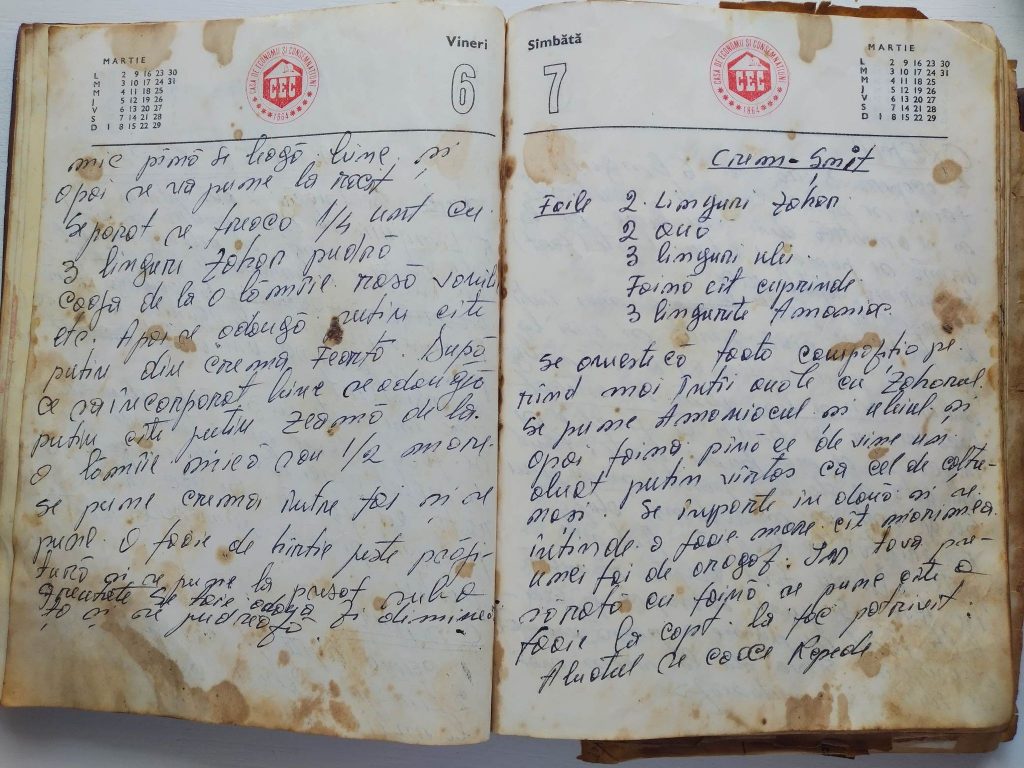 MARTIE
L 2 9 16 23 30
M 3 10 17 24 31
M 4 11 18 25
J 5 12 19 26
V 6 13 20 27
S 7 14 21 28
D 1 8 15 22 29
CASA DE ECONOMII ȘI CONSEMNAȚIUNI
CEC
1864
Vineri
6
mic pînă se leagă bine, și
apoi se va pune la răcit,
Separat se freacă 1/4 unt cu
3 linguri zahăr pudră
coaja de la o lămîie rasă vanilie
etc. Apoi se adaugă puțin cîte
puțin din crema feartă. După
ce s-a încorporat bine se adaugă
puțin cîte puțin zeamă de la
o lămîie mică sau 1/2 mare.
Se pune crema între foi și se
pune o foaie de hîrtie peste prăji-
tură și se pune la presat sub o
greutate se taie a doua zi diminea
ța și se pudrează
Sîmbătă
7
CASA DE ECONOMII ȘI CONSEMNAȚIUNI
CEC
1864
MARTIE
L 2 9 16 23 30
M 3 10 17 24 31
M 4 11 18 25
J 5 12 19 26
V 6 13 20 27
S 7 14 21 28
D 1 8 15 22 29
Crem-Snit
Foile 2 linguri zahăr
2 ouă
3 linguri ulei
Faină cît cuprinde
3 lingurițe Amoniac
Se amestecă toată compoziția pe
rînd mai întîi ouăle cu zahărul
Se pune Amoniacul și uleiul și
apoi faina pînă ce devine un
aluat puțin vîrtos ca cel de colțu-
nași. Se împarte în două și se
întinde o foaie mare cît mărimea
unei foi de aragaz. În tava pre-
sărată cu faină se pune cîte o
foaie la copt la foc potrivit.
Aluatul se coace Repede